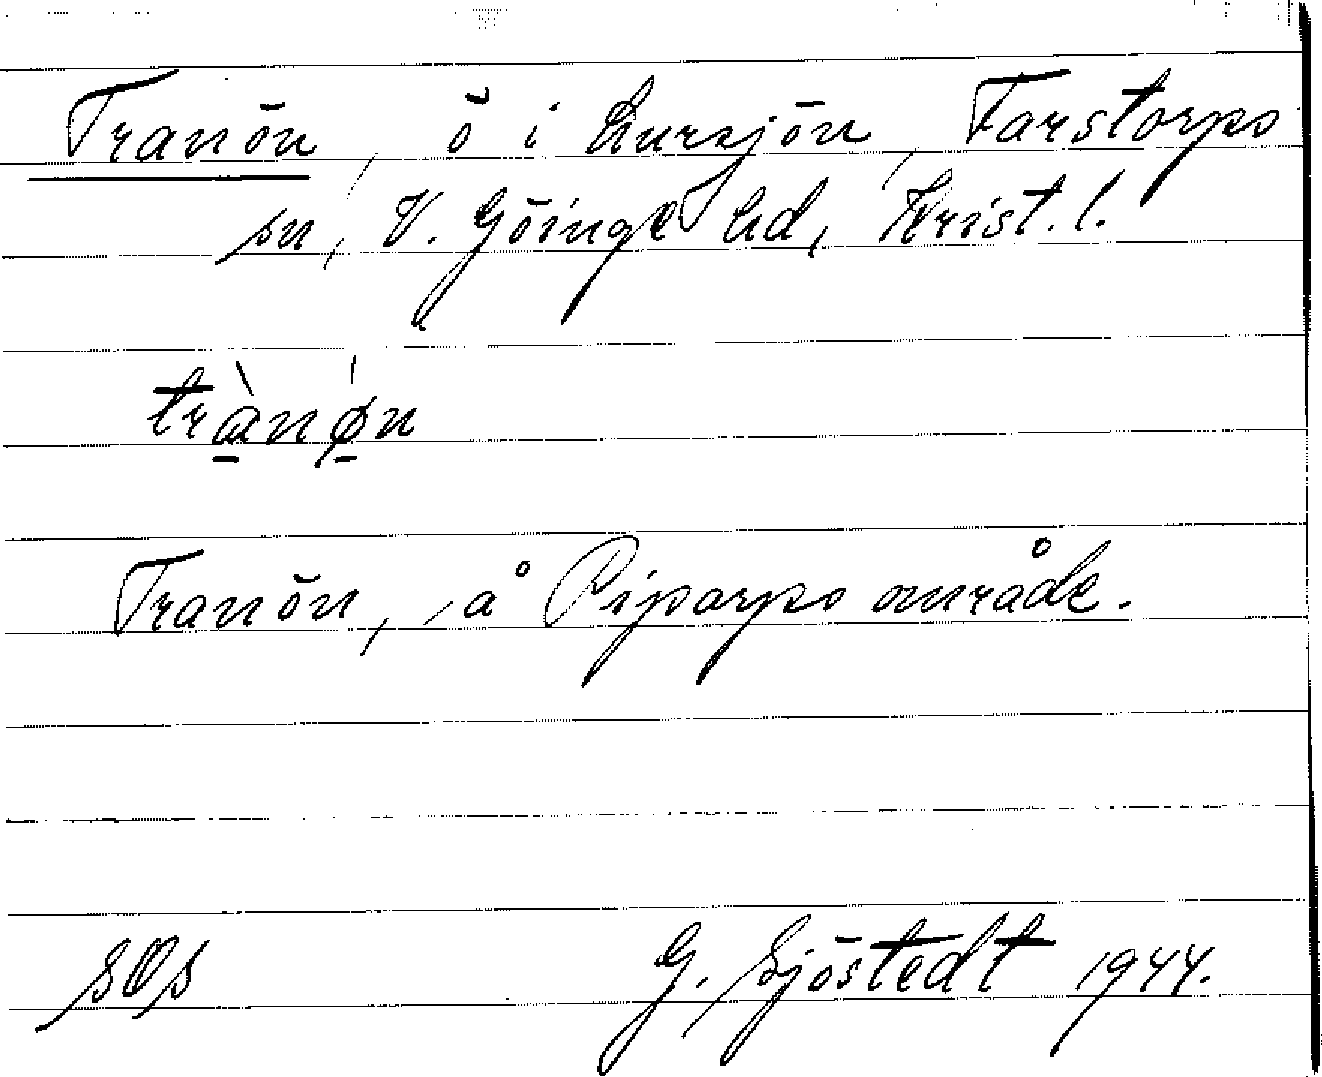 Tranön, ö i Lursjön, Farstorps
sn, V. Göinge hd, Krist. l.
trànøn
Tranön, å Piparps område.
sØs
G. Sjöstedt 1944.